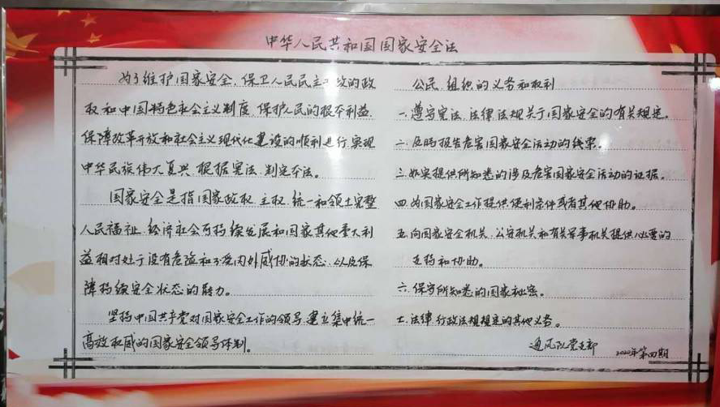 中华人民共和国国家安全法
为了维护国家安全,保卫人民民主专政的政
权和中国特色社会主义制度,保护人民的根本利益,
保障改革开放和社会主义现代化建设的顺利进行实现
中华民族伟大复兴,根据宪法,制定本法。
国家安全是指国家政权、主权、统一和领土完整
人民福祉、经济社会可持续发展和国家其他重大利
益相对处于没有危险和不受内外威胁的状态,以及保
障持续安全状态的能力。
坚持中国共产党对国家安全工作的领导,建立集中统一
高效权威的国家安全领导体制。
公民、组织的义务和权利
一.遵守宪法、法律法规关于国家安全的有关规定。
二.及时报告危害国家安全活动的线索。
三.如实提供所知悉的涉及危害国家安全活动的证据。
四.为国家安全工作提供便利条件或者其他协助。
五.向国家安全机关、公安机关和有关军事机关提供必要的
支持和协助。
六.保守所知悉的国家秘密。
七.法律行政法规规定的其他义务。
通风队党支部 2020年第四期